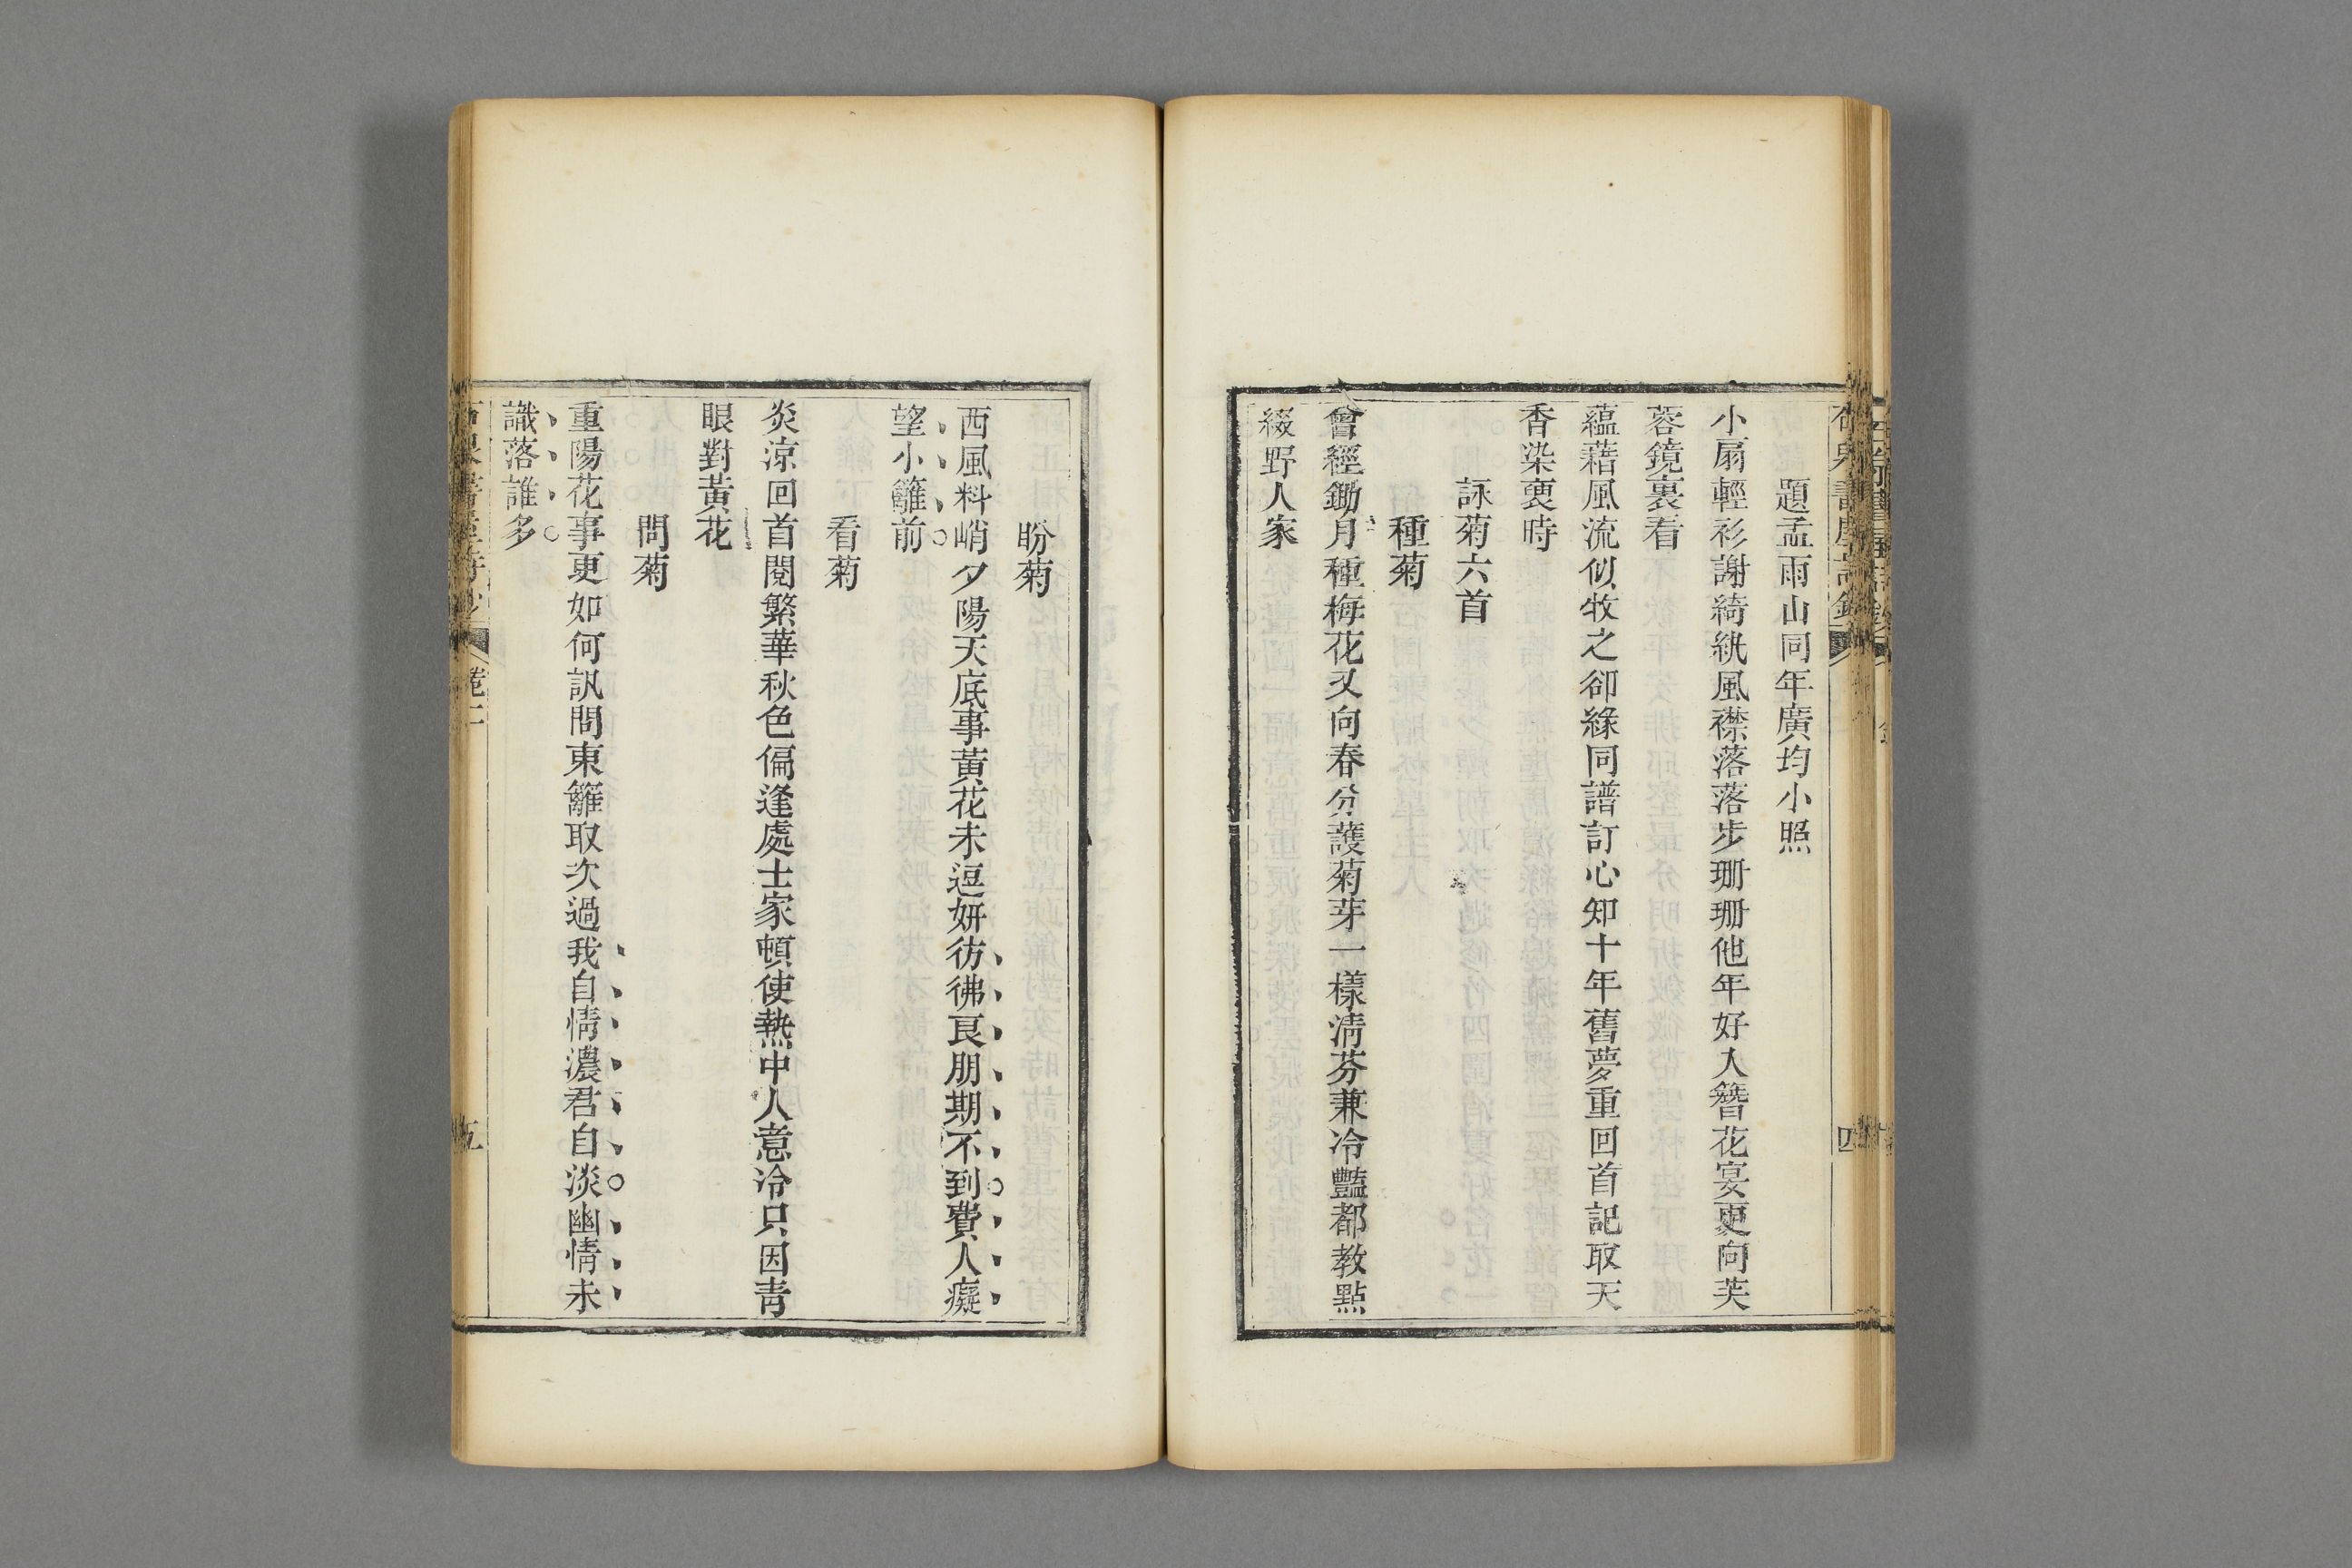 題孟雨山同年廣均小照
小扇輕衫謝綺紈風襟落落步珊珊他年好入簪花宴更向芙
蓉鏡裏看
蘊藉風流似牧之卻緣同譜訂心知十年舊夢重回首記取天
香染褎時
詠菊六首
種菊
曾經鋤月種梅花又向春分護菊芽一樣淸芬兼冷豔都教點
綴野人家
盼菊
西風料峭夕陽天底事黃花未逗妍彷彿良朋期不到費人癡
望小籬前
看菊
炎涼回首閱繁華秋色偏逢處士家頓使熱中人意冷只因靑
眼對黃花
問菊
重陽花事更如何訊問東籬取次過我自情濃君自淡幽情未
識落誰多